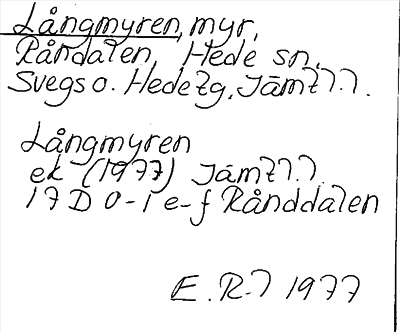 Långmyren, myr,
Råndalen, Hede sn,
Svegs o. Hede tg, Jämtl.l.
Långmyren
ek (1977) Jämtl.l.
17 D 0-1 e-f Rånddalen
E.R-l 1977